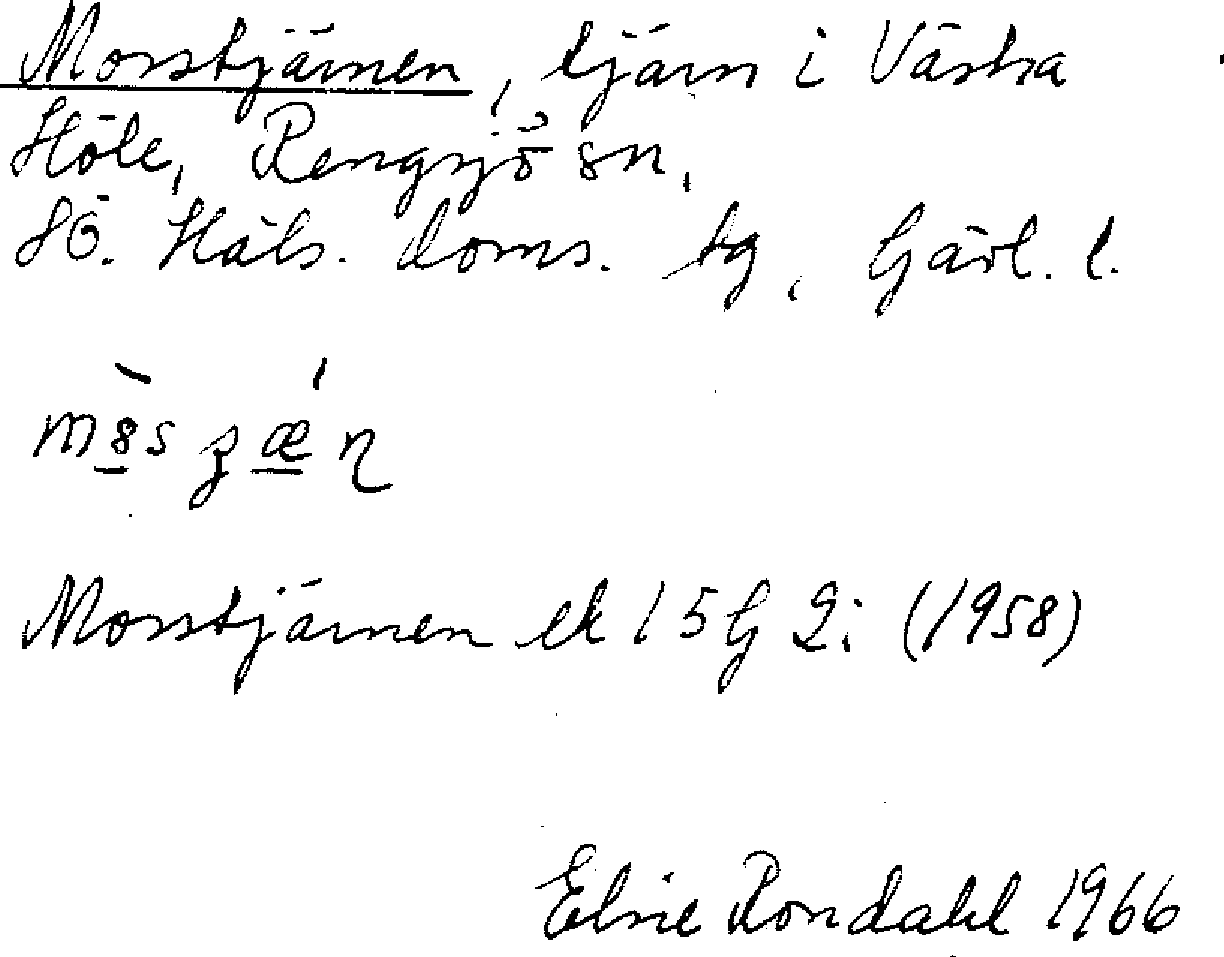 Morstjärnen, tjärn i Västra
Höle, Rengsjö sn,
SÖ. Häls. doms. tg, Gävl. l.
Morstjärnen ek 15G 2i (1958)
Elsie Rondahl 1966